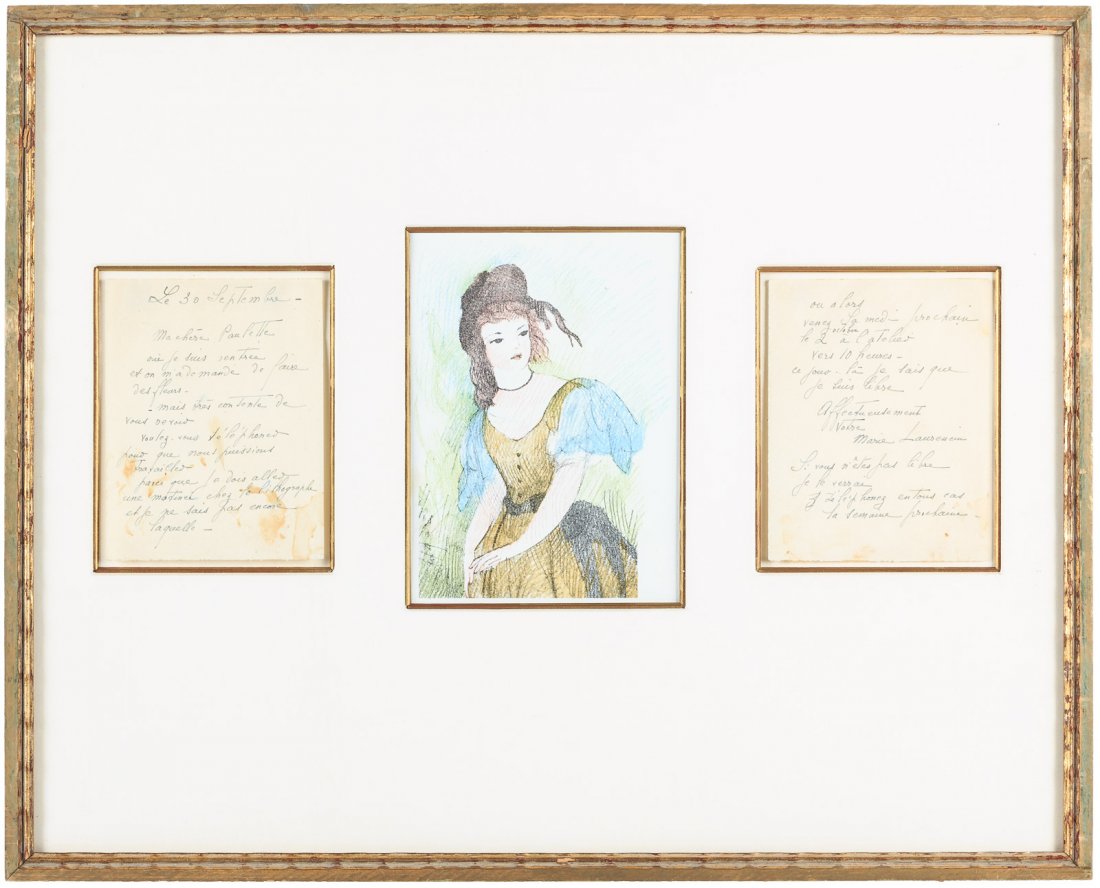 Le 30 Septembre -
Ma chère Paulette
oui je suis rentrée
et on m'a demandé de faire
des fleurs -
- mais très contente de
vous revoir
voulez-vous téléphoner
pour que nous puissions
travailler
parce que je dois aller
une matinée chez le lithographe
et je ne sais pas encore
laquelle -
ou alors
venez samedi prochain
octobre
le 2 à l'atelier
vers 10 heures -
ce jour-là je sais que
je suis libre
Affectueusement
Votre
Marie Laurencin
Si vous n'êtes pas libre
je le verrai
téléphonez en tous cas
la semaine prochaine -